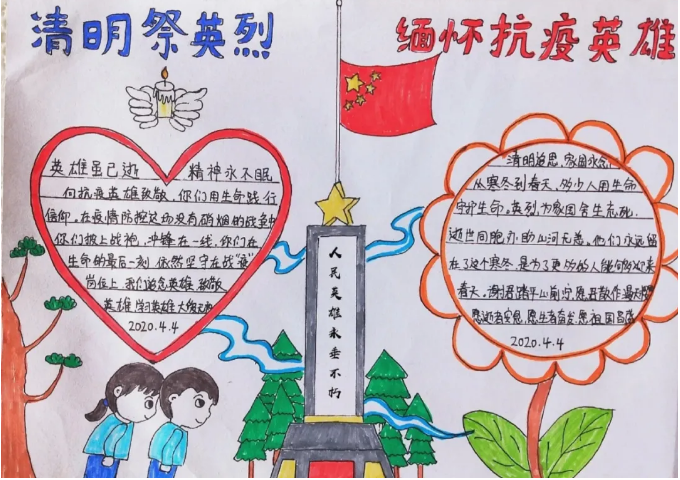 清明祭英烈
缅怀抗疫英雄
英雄虽已逝 精神永不眠
向抗疫英雄致敬，你们用生命践行
信仰，在疫情防控这场没有硝烟的战争中
你们披上战袍，冲锋在一线，你们在
生命的最后一刻 依然坚守在战“疫”
岗位上，我们追念英雄 致敬
英雄，学习英雄
2020.4.4
人民英雄永垂不朽
清明追思，家国永念
从寒冬到春天，多少人用生命
守护生命，英烈为家国舍生忘死
逝世同胞 山河无恙。他们永远留
在了这个寒冬，是为了更多的人能够迎来
春天，
愿逝者安息，愿生者奋发 愿祖国昌盛
2020.4.4